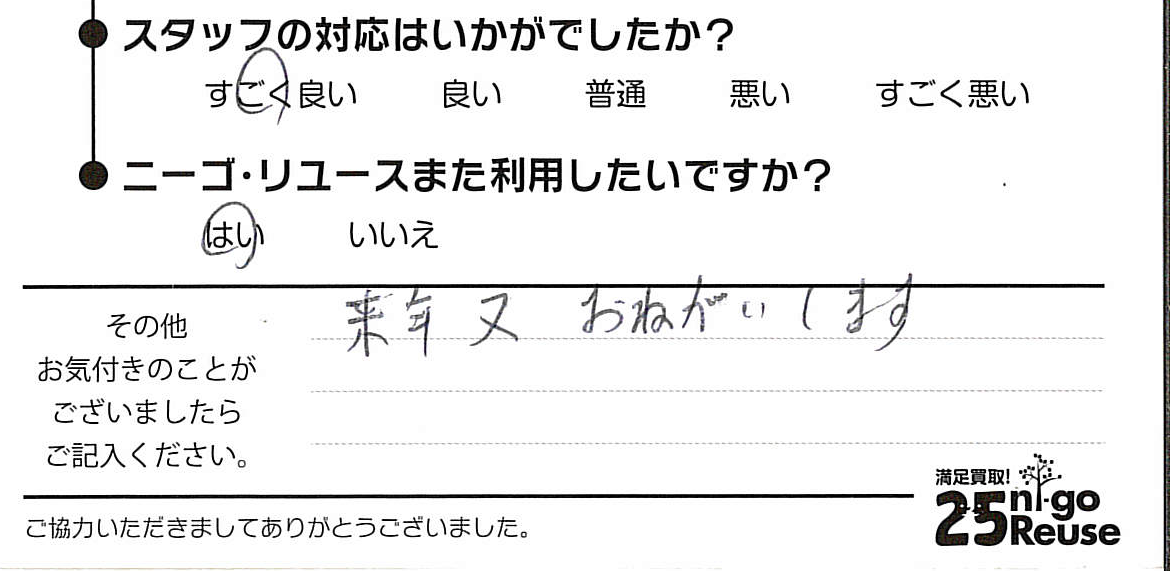 スタッフの対応はいかがでしたか？
すごく良い 良い 普通 悪い すごく悪い
ニーゴ・リユースまた利用したいですか？
はい いいえ
来年又 おねがいします
その他
お気付きのことが
ございましたら
ご記入ください。
満足買取!
25 ni-go
Reuse
ご協力いただきましてありがとうございました。